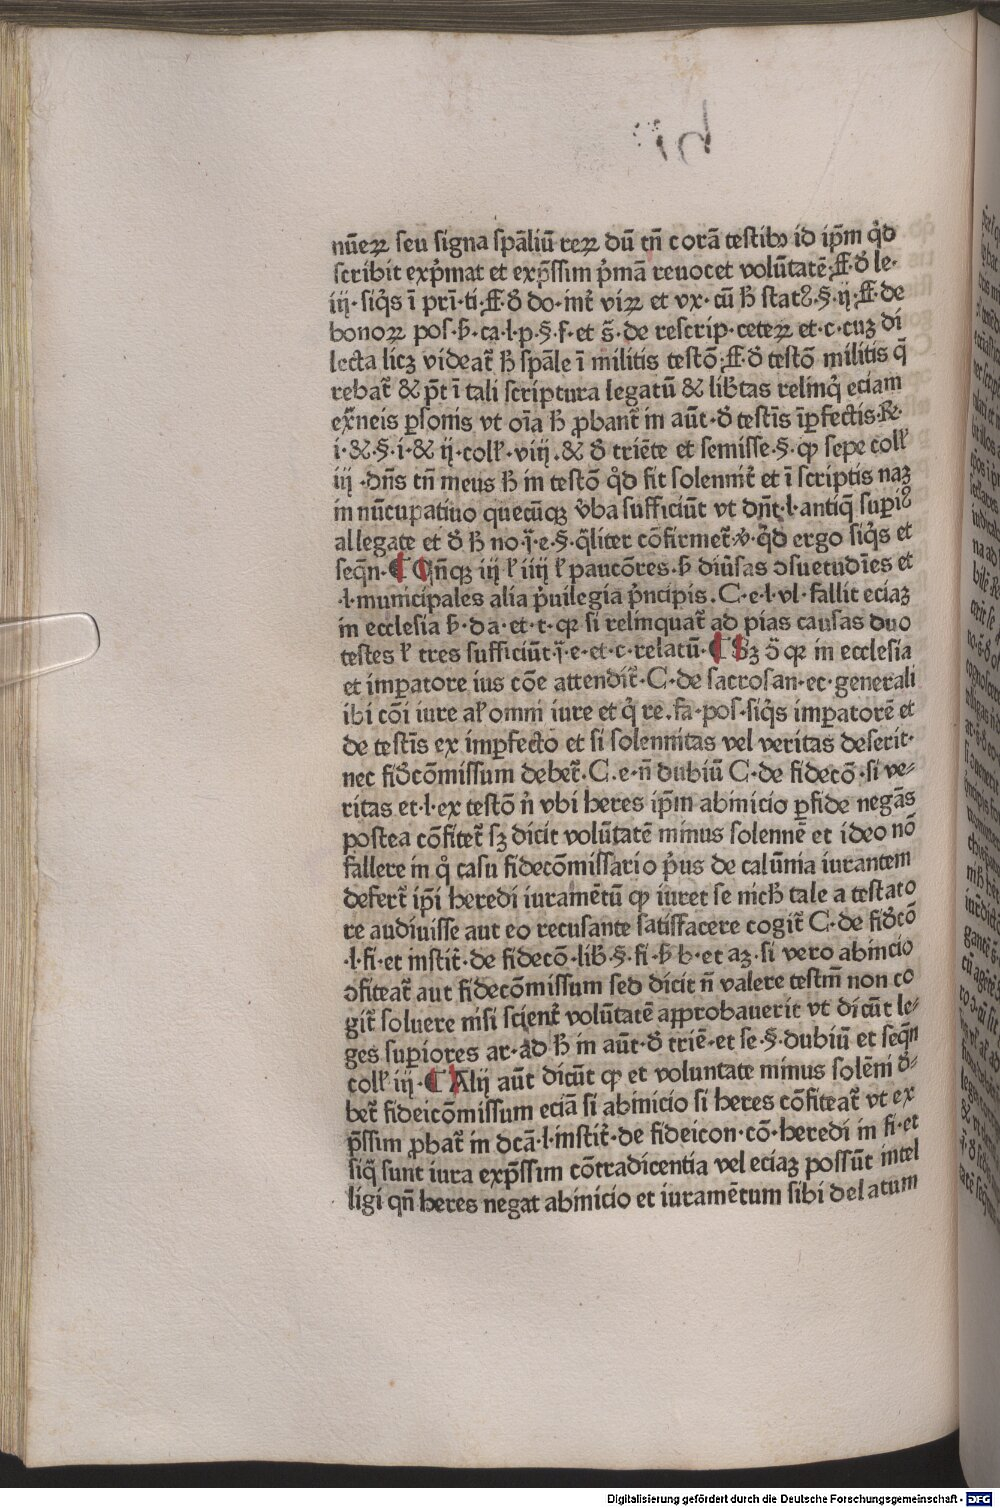 nūeꝝ seu signa spāliū reꝝ dū tn̄ corā testibꝰ id ip̄m qd̓
scribit exp̓mat et exp̄ssim p̓mā reuocet volūtatē·ff·ð le·
iij·siq̓s ī pri̓·ti·ff·ð do·int̉ viꝝ et vx·cū h̄ statꝰ·§·ij·ff·de
bonoꝝ pos·s̄·ca·l·p·§·f·et s̄·de rescrip·ceteꝝ et·c·cuꝫ di
lecta licꝫ videat̉ h̄ spāle ī militis testō·ff·ð testō militis q̄
rebat̉ & p̄t ī tali scriptura legatū & lib̓tas relinq̓ eciam
ex̄neis ꝑsonis vt oīa h̄ ꝓbant̉ in aūt·ð testīs īꝑfectis·Re·
i·&·§·i·& ij·coll̓·viij·& ð triēte et semisse·§·ꝙ sepe coll̓
iij·dn̄s tn̄ meus h̄ in testō qd̓ fit solennit̉ et ī scriptis naꝫ
in nūcupatiuo quecūqꝫ v̓ba sufficiūt vt dn̄t·l·antiq̄ supiꝰ
allegate et ð h̄ no·ī·e·§·q̄liter cōfirmet̉·v̓·qd̓ ergo siq̓s et
seqn̄·¶ Qn̄qꝫ iij l̓ iiij l̓ paucōres·s̄ diu̓sas ↄsuetudīes et
·l·municipales alia p̓uilegia p̓ncipis·C·e·l·vl·fallit eciaꝫ
in ecclesia s̄·da·et·t·ꝙ si relinquat̉ ad pias causas duo
testes l̓ tres sufficiūt ī·e·et·c·relatū·¶ Sꝫ ð ꝙ in ecclesia
et impatore ius cōe attendit̉·C·de sacrosan·ec·generali
ibi cōi iure al̓ omni iure et q̓ re·fa·pos·siq̓s impatorē et
de testīs ex imꝑfecto et si solennitas vel veritas deserit·
nec fid̓cōmissum debet̉·C·e·n̄ dubiū C·de fidecō·si ve-
ritas et·l·ex testō n̓ vbi heres ip̄m abinicio ꝑfide negās
postea cōfitet̉ sꝫ dicit volūtatē minus solennē et ideo nō
fallere in q̓ casu fidecōmissario p̓us de calūnia iurantem
defert̉ ip̄i heredi iuramētū ꝙ iuret se nich̓ tale a testato
re audiuisse aut eo recusante satisfacere cogit̉ C·de fid̓cō
·l·fi·et instit̉·de fidecō·lib̓·§·fi·s̄ h·et aꝫ·si vero abincio
ↄfiteat̉ aut fidecōmissum sed dicit n̄ valere testm̄ non co
git̉ soluere nisi scient̉ volūtatē approbauerit vt dicūt le-
ges superiores ar·ad h̄ in aūt·ð triē·et se·§·dubiū et seqn̄
coll̓ iij·¶ Alij aūt dicūt ꝙ et voluntate minus solēni ð-
bet̉ fideicōmissum eciā si abinicio si heres cōfiteat̉ vt ex
p̄ssim ꝓbat̉ in dcā·l·instit̉·de fideicon·cō·heredi in fi·et
siq̄ sunt iura exp̄ssim cōtradicentia vel eciaꝫ possūt intel
ligi qn̄ heres negat abinicio et iuramētum sibi delatum
Digitalisierung gefördert durch die Deutsche Forschungsgemeinschaft - DFG